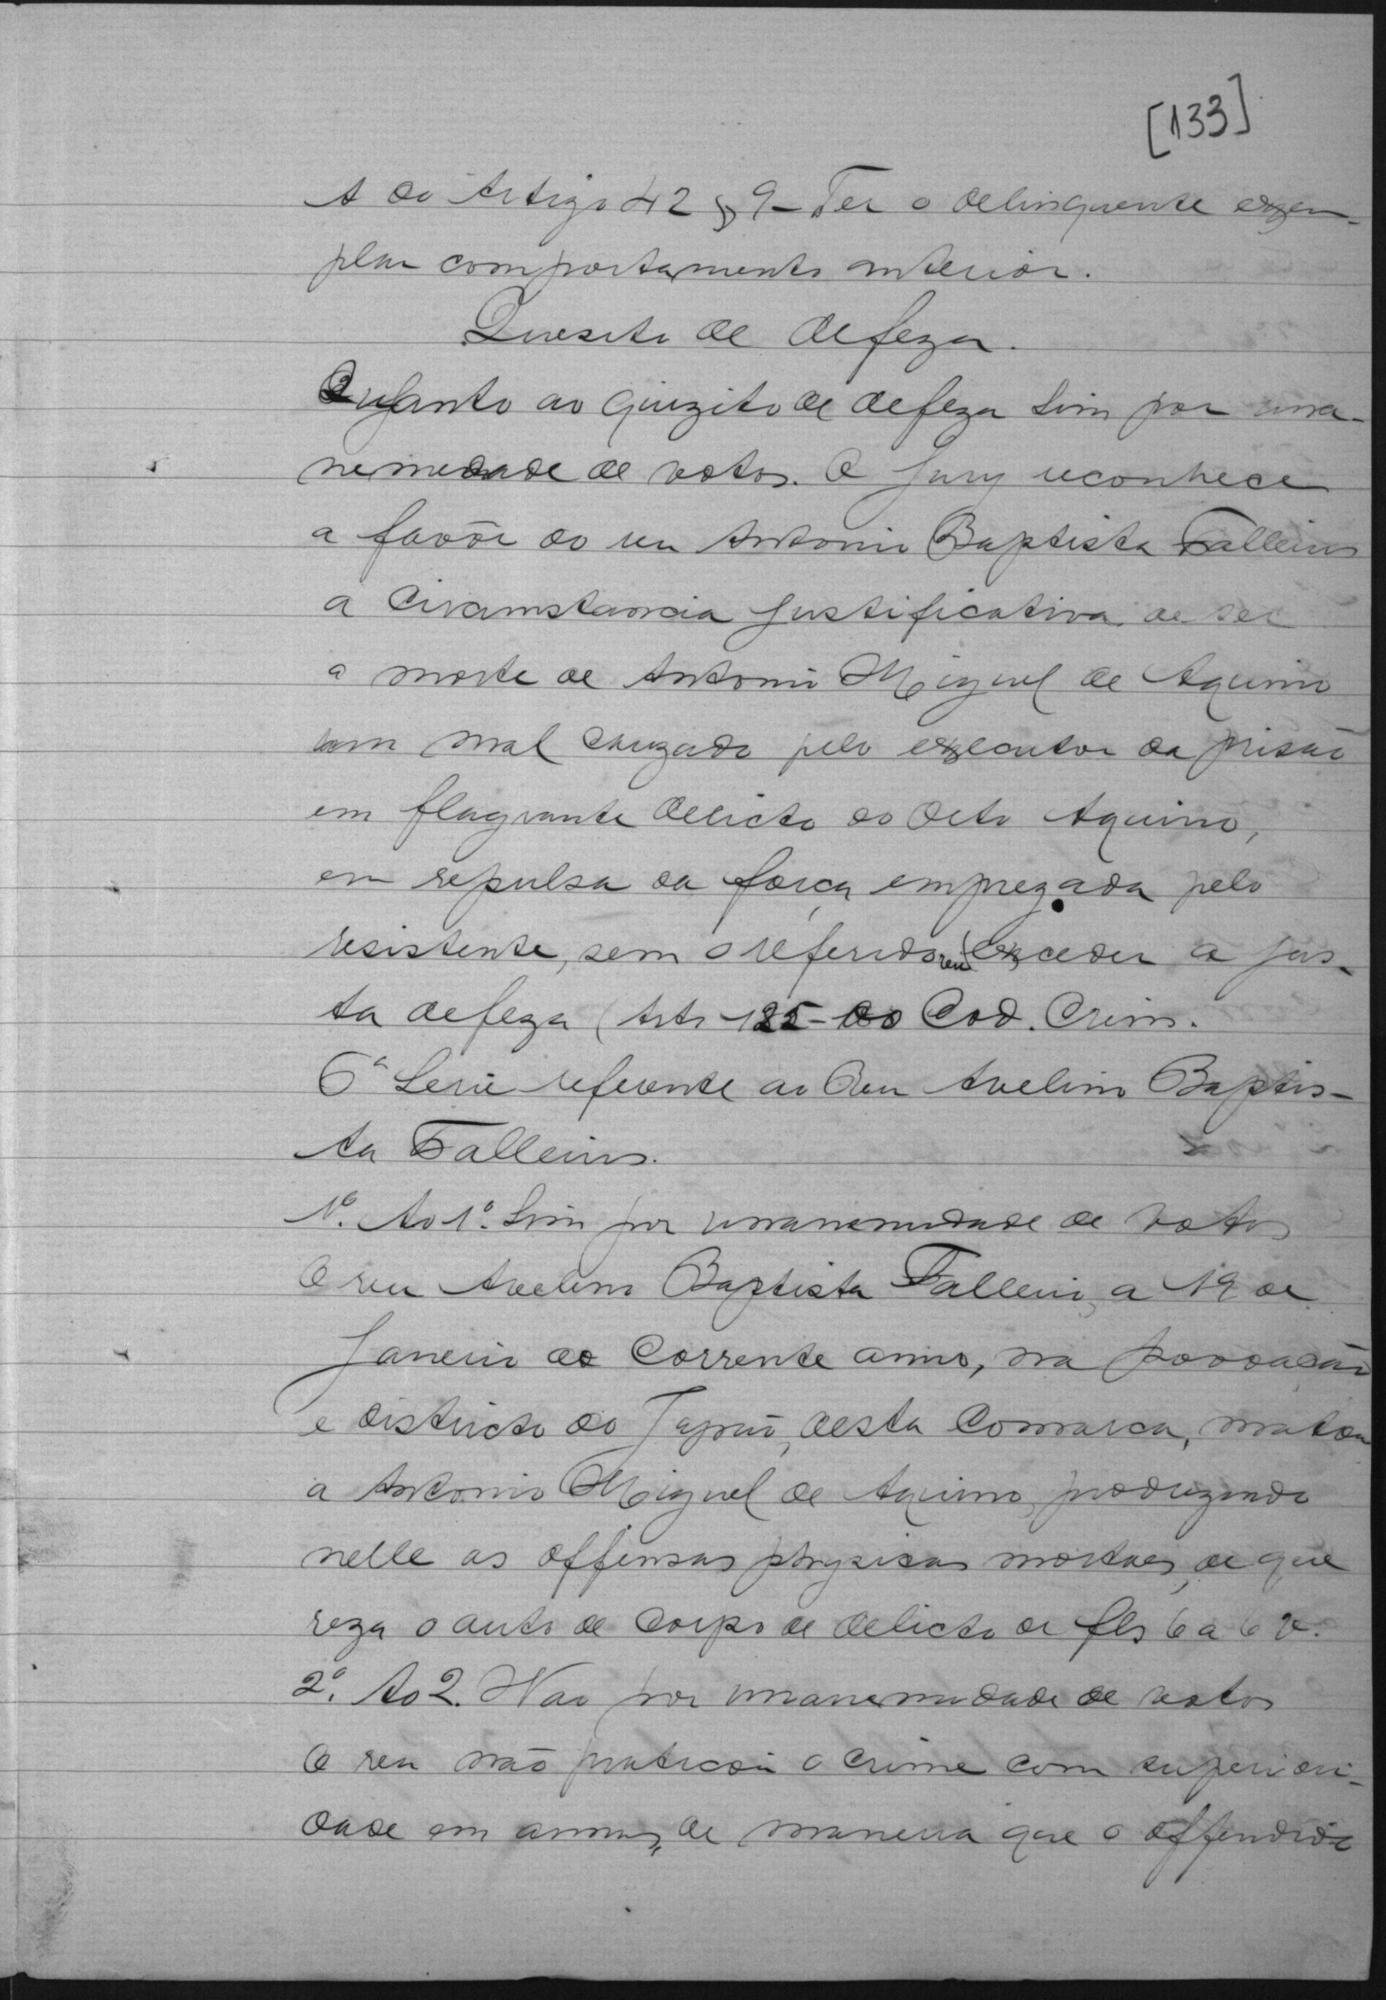 [133]
A do Artigo 42 § 9 - Ter o delinquente exem-
plar comportamento anterior.
Quesito de defeza.
Quanto ao quizito de defeza Sim por una-
nemedade de votos. O Jury reconhece
a favôr do reu Antonio Baptista Falleiros
a circumstancia justificativa de ser
a morte de Antonio Miguel de Aquino
um mal cauzado pelo executor da prisão
em flagrante delicto do dito Aquino,
em repulsa da força empregada pelo
resistente, sem o referido reu exceder a jus-
ta defeza (Arto 125 do Cod. Crim.
6ª Serie referente ao Reu Avelino Baptis-
ta Falleiros.
1º. Ao 1º. Sim por unanemidade de votos
O reu Avelino Baptista Falleiros, a 19 de
Janeiro do corrente anno, na povoação
e districto do Japão, desta Comarca, matou
a Antonio Miguel de Aquino, produzindo
nelle as offensas physicas mortaes, de que
reza o auto de corpo de delicto de fls 6 a 6 v.
2º. Ao 2. Não por unanemidade de votos
O reu não praticou o crime com superiori-
dade em armas, de maneira que o offendido